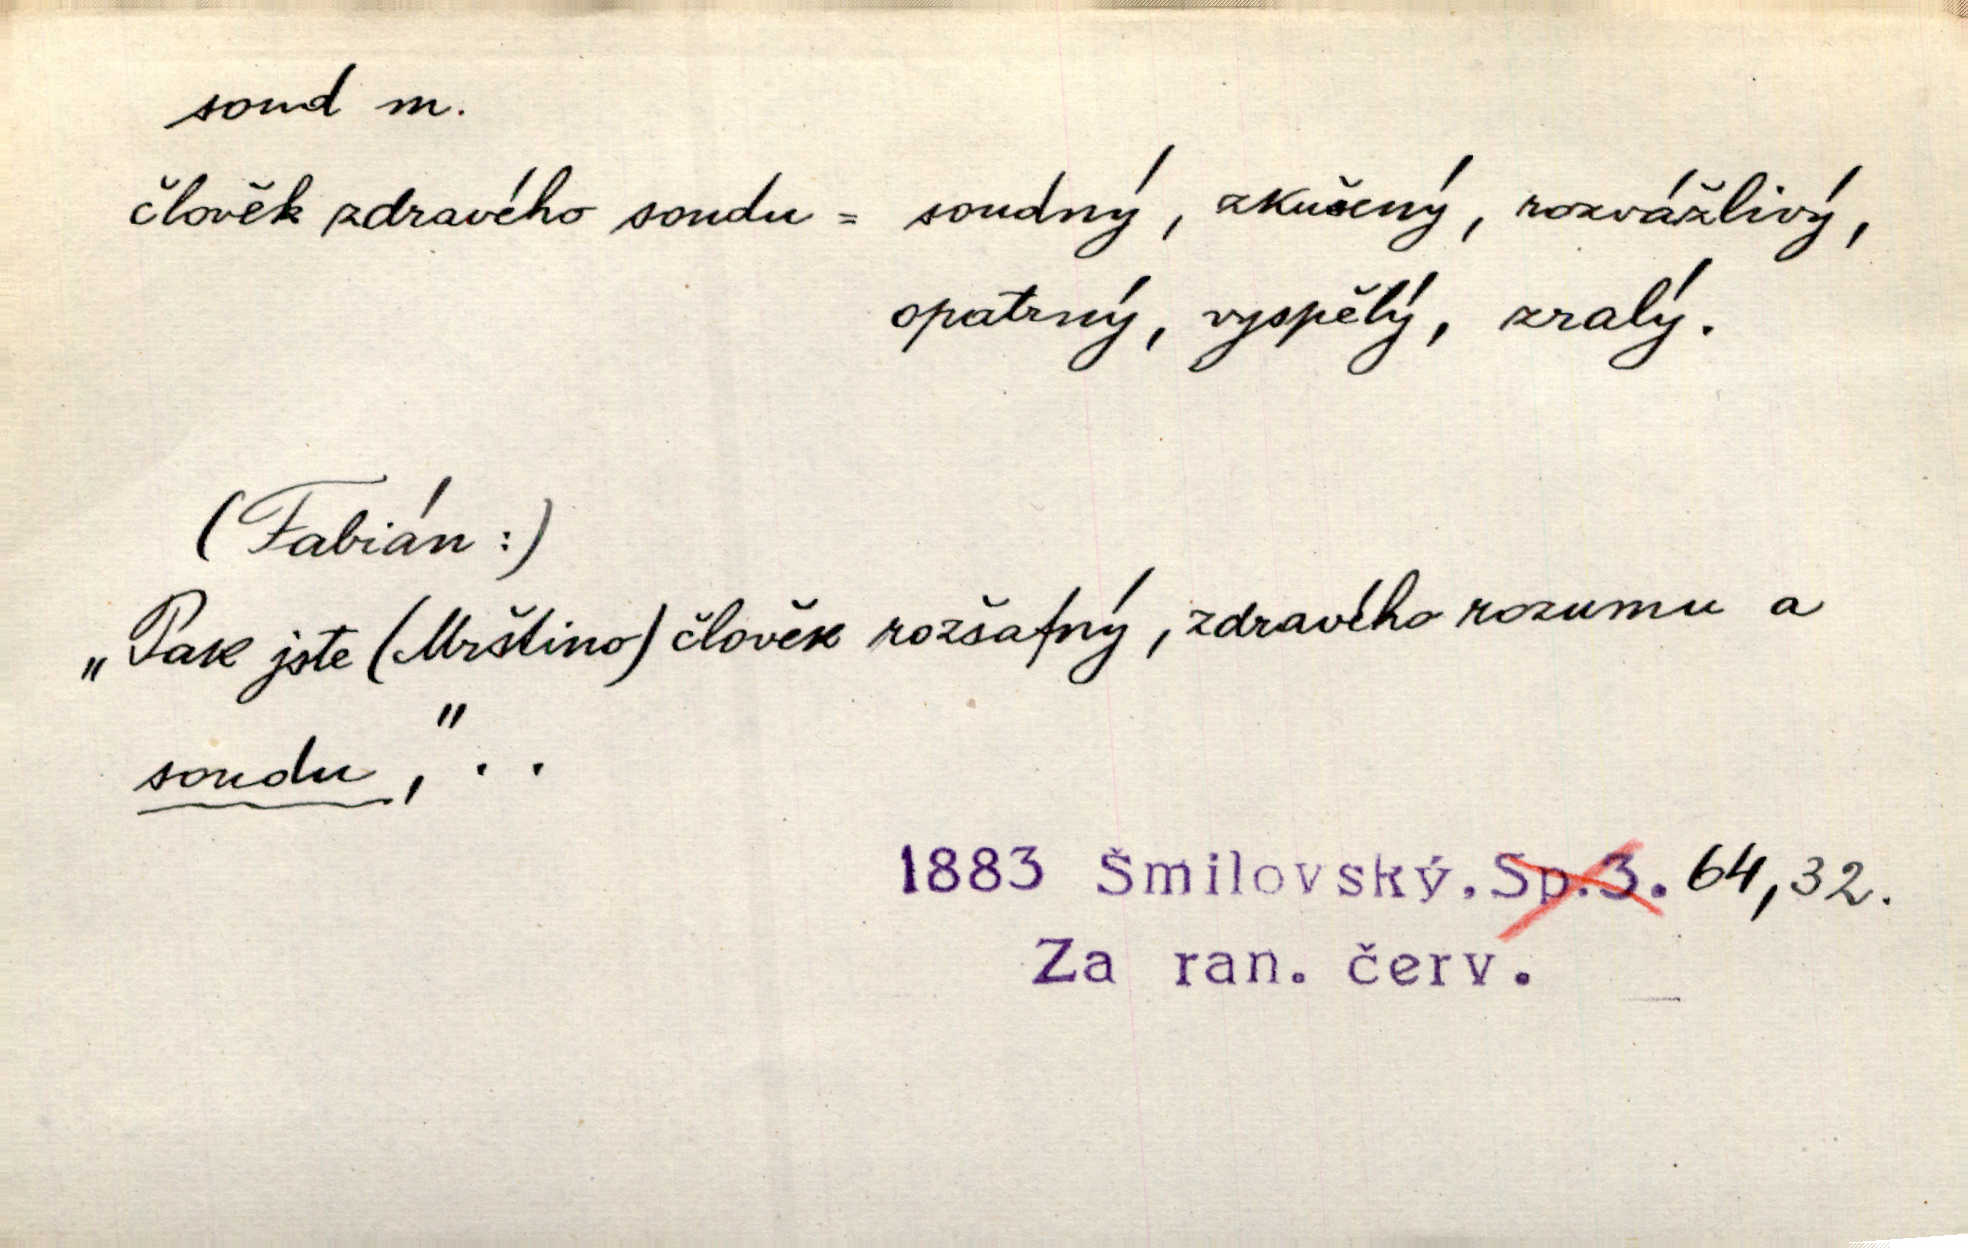 soud m.
člověk zdravého soudu = soudný, zkušený, rozvážlivý,
opatrný, vyspělý, zralý.
(Fabián:)
„Pak jste (Mrštino) člověk rozšafný, zdravého rozumu a
soudu,“ . .
1883 Šmilovský. Sp.3. 64,32.
Za ran. červ.